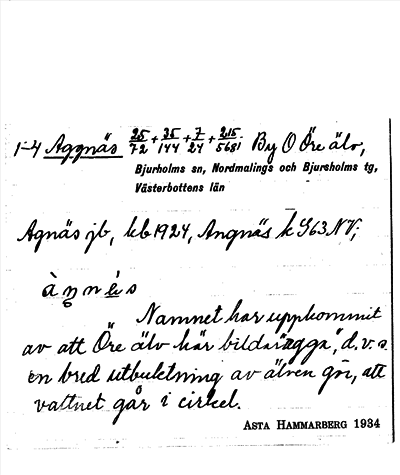 1-4 Aggnäs 25/72 + 35/144 + 7/24 + 215/5681 By O Öre älv,
Bjurholms sn, Nordmalings och Bjurholms tg,
Västerbottens län
Agnäs jb, kb 1924, Angnäs k G63 NV;
à n n é s
Namnet har uppkommit
av att Öre älv här bildar "ägga", d.v.s.
en bred utbuktning av älven gör, att
vattnet går i cirkel.
ASTA HAMMARBERG 1934